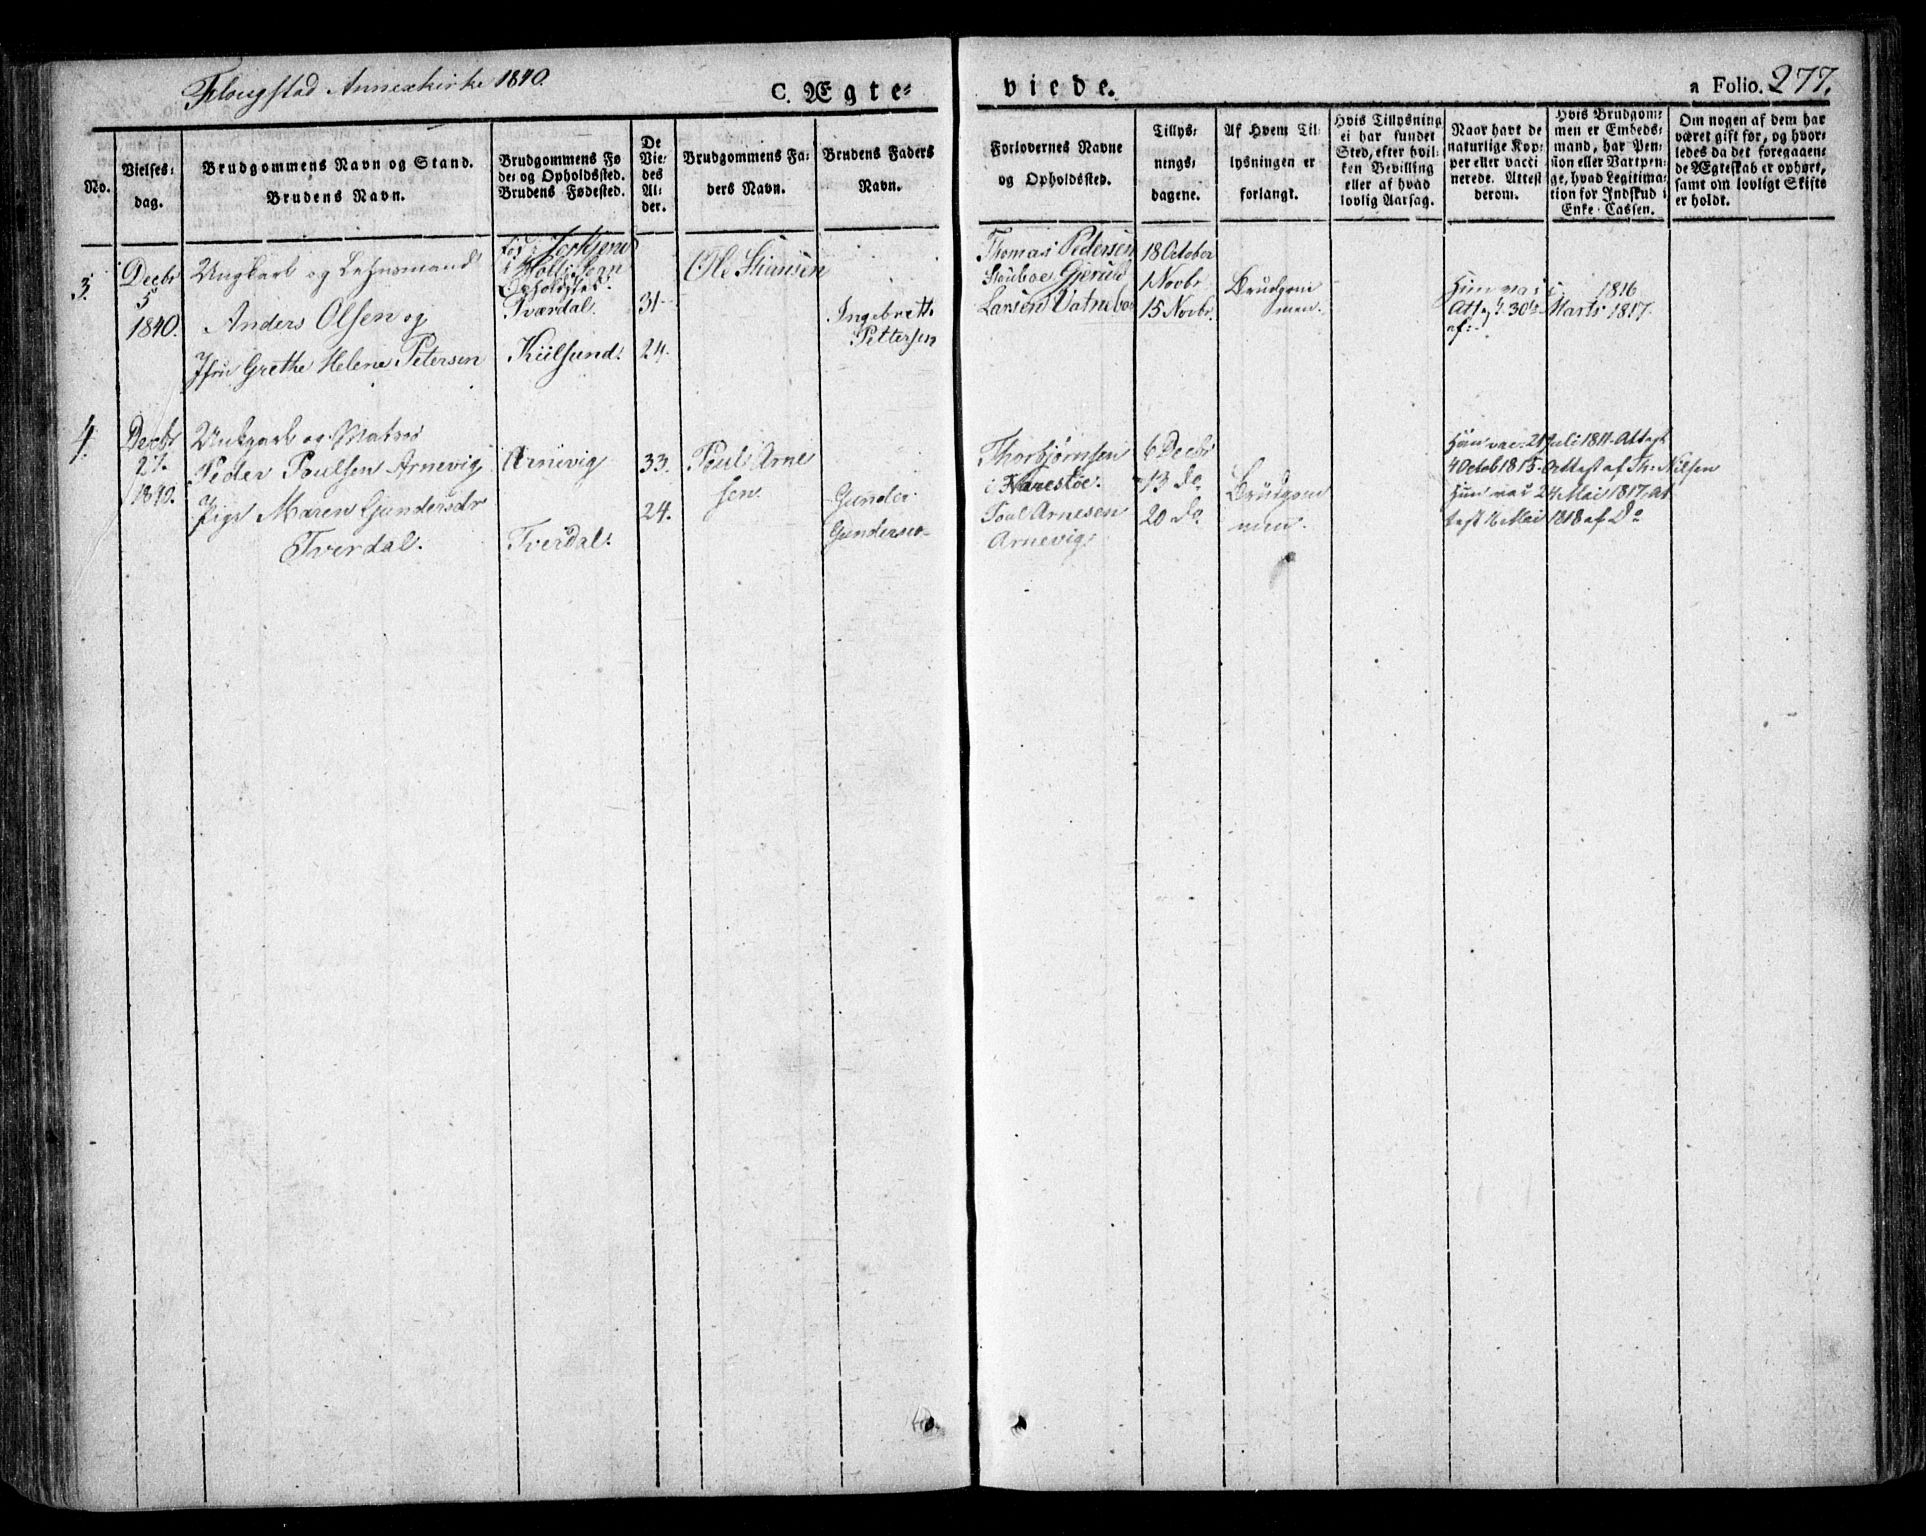 Flougstad Annexkirke 1840.
C. Ægte-
viede.
a Folio. 277.
No.
Vielses-
dag.
Brudgommens Navn og Stand.
Brudens Navn.
Brudgommens Fø
de- og Opholdssted.
Brudens Fødested.
De
Vie-
des
Al-
der.
Brudgommens Fa-
ders Navn.
Brudens Faders
Navn.
Forlovernes Navne
og Opholdssted.
Tillys-
nings-
dagene.
Af Hvem Til-
lysningen er
forlangt.
Hvis Tillysning
ei har fundet
Sted, efter hvil-
ken Bevilling
eller af hvad
lovlig Aarsag.
Naar havt de
naturlige Kop-
per eller vacci
nerede. Attest
derom.
Hvis Brudgom-
men er Embeds-
mand, har Pen-
sion eller Vartpen-
ge, hvad Legitima-
tion for Indskud i
Enke-Cassen.
Om nogen af dem har
været gift før, og hvor-
ledes da det foregaaen-
de Ægteskab er ophørt,
samt om lovligt Skifte
er holdt.
3.
Decbr
5
1840.
Ungkarl og Lehnsmand
Anders Olsen og
Jfru Grethe Helene Petersen
Opholdssted
Tværdal.
Kiilsund.
31
24.
Ole
Ingebrett
Pettersen
Thomas Pedersen
Gjeruld
Larsen Vatnebo
18 October
1 Novbr
15 Novbr.
Brudgom
men.
Hun var 1816
Att. 30te Marts 1817
af:
4.
Decbr
27.
1840.
Unkgarl og Matros
Peder Poulsen Arnevig
og
Pige Maren Gundersdr
Tverdal.
Arnevig
Tverdal.
33.
24.
Poul Arne
sen.
Gunder
Gundersen
Thorbjørnsen
i Narestøe.
Poul Arnesen
Arnevig.
6 Decbr
13 do
20 do
Brudgom
men.
Han var 21 Juli 1811. Attest
4 Octob 1815. Attest af Th: Nilsen
Hun var 24 Mai 1817. At
test 6 Mai 1818 af Do